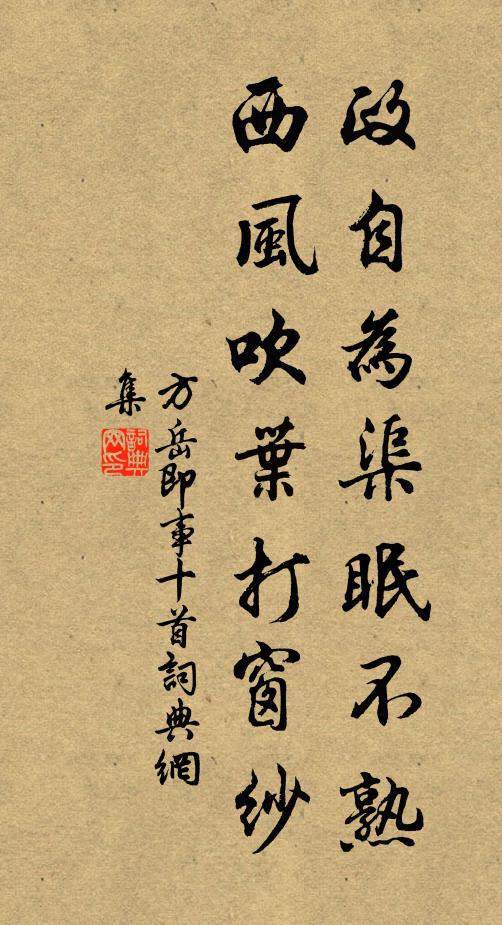 政自為渠眠不熟
西風吹葉打窗紗
方岳即事十首詞典網
集
詞典
网印